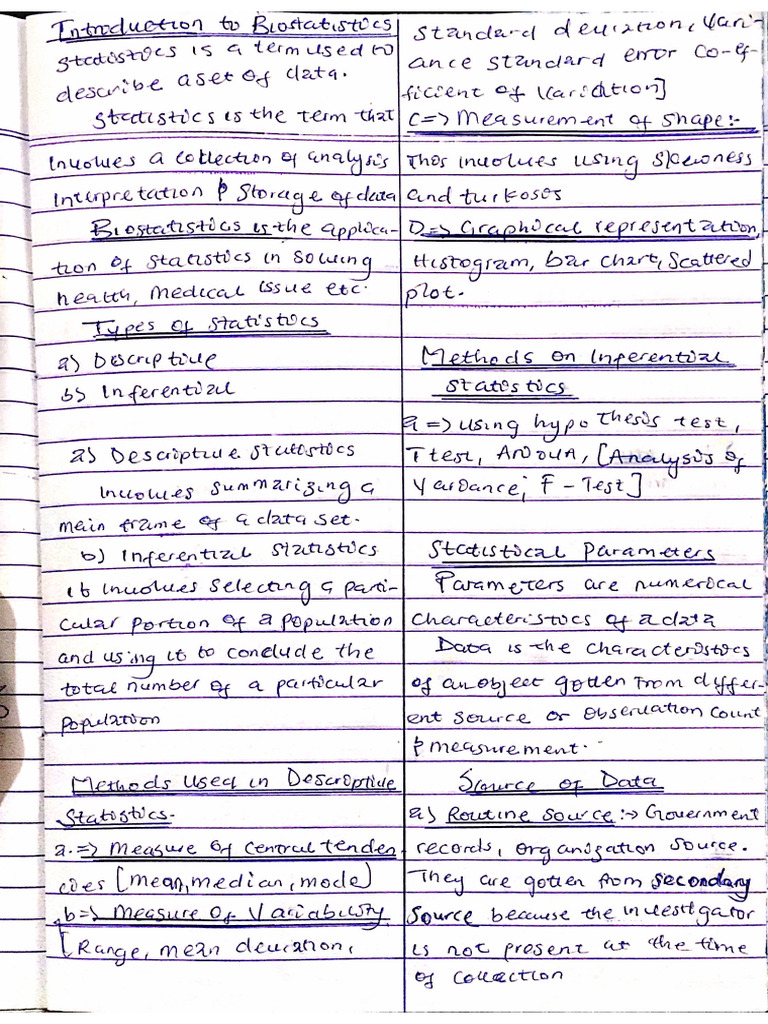 Introduction to Biostatistics
Statistics is a term used to
describe a set of data.
Statistics is the term that
involves a collection of analysis
interpretation & storage of data
Biostatistics is the applica-
tion of statistics in solving
health, medical issue etc.
Types of statistics
a) Descriptive
b) Inferential
a) Descriptive statistics
Involves summarizing a
main frame of a data set.
b) Inferential statistics
it involves selecting a parti-
cular portion of a population
and using it to conclude the
total number of a particular
population
Methods Used in Descriptive
Statistics.
a. => Measure of central tenden
cies [mean, median, mode)
b=> Measure of Variability
[Range, mean deviation,
standard deviation, Vari-
ance standard error co-ef-
ficient of Variation]
C=> Measurement of shape:-
This involves using skewness
and turkoses
D=> Graphical representation,
Histogram, bar chart, scattered
plot.
Methods on Inferential
statistics
a => using hypothesis test,
T test, ANOVA, [Analysis of
Variance; F-Test]
Statistical Parameters
Parameters are numerical
characteristics of a data
Data is the characteristics
of an object gotten from differ-
ent source or observation count
& measurement.
Source of Data
a) Routine source :-> Government
records, organization source.
They are gotten from secondary
source because the investigator
is not present at the time
of collection